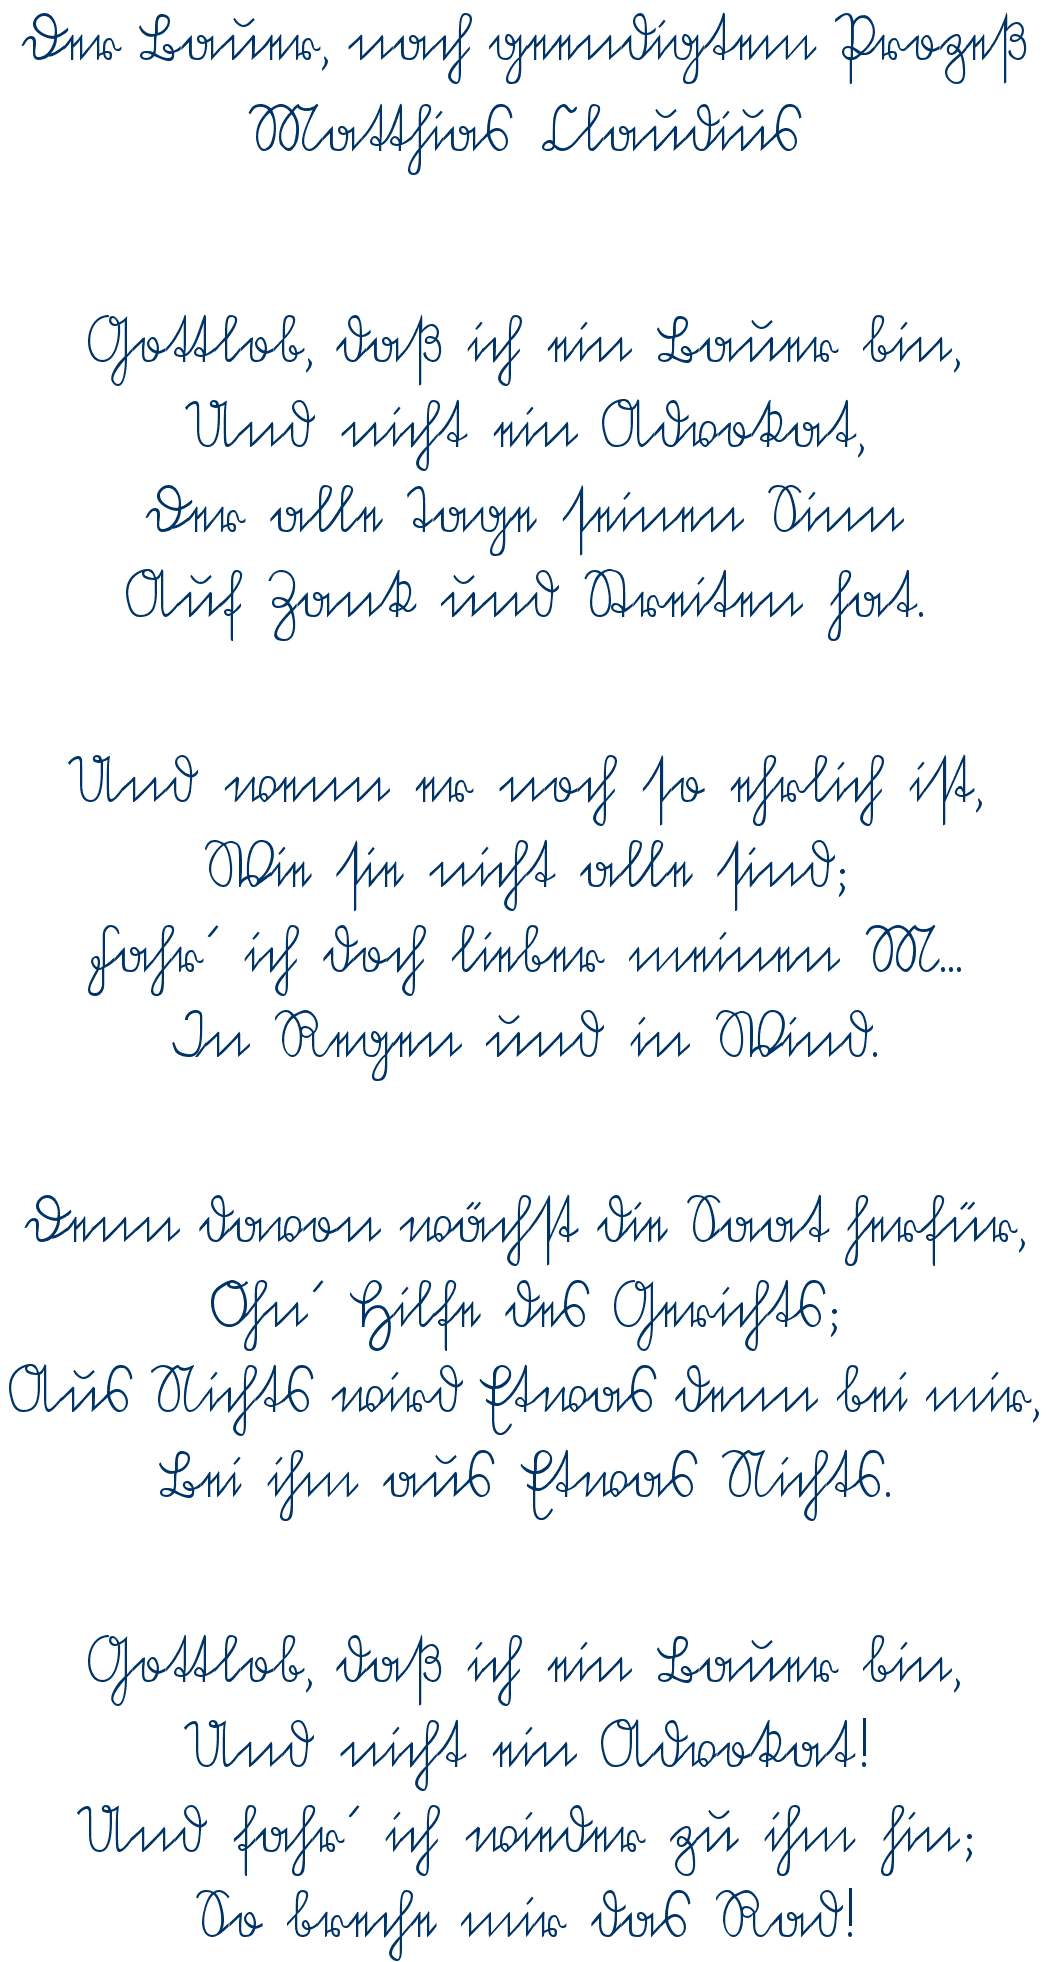 Der Bauer, nach geendigtem Prozeß
Matthias Claudius
Gottlob, daß ich ein Bauer bin,
Und nicht ein Advokat,
Der alle Tage seinen Sinn
Auf Zank und Streiten hat.
Und wenn er noch so ehrlich ist,
Wie sie nicht alle sind;
Fahr´ ich doch lieber meinen M...
In Regen und in Wind.
Denn davon wächst die Saat herfür,
Ohn´ Hilfe des Gerichts;
Aus Nichts wird Etwas denn bei mir,
Bei ihm aus Etwas Nichts.
Gottlob, daß ich ein Bauer bin,
Und nicht ein Advokat!
Und fahr´ ich wieder zu ihm hin;
So breche mir das Rad!